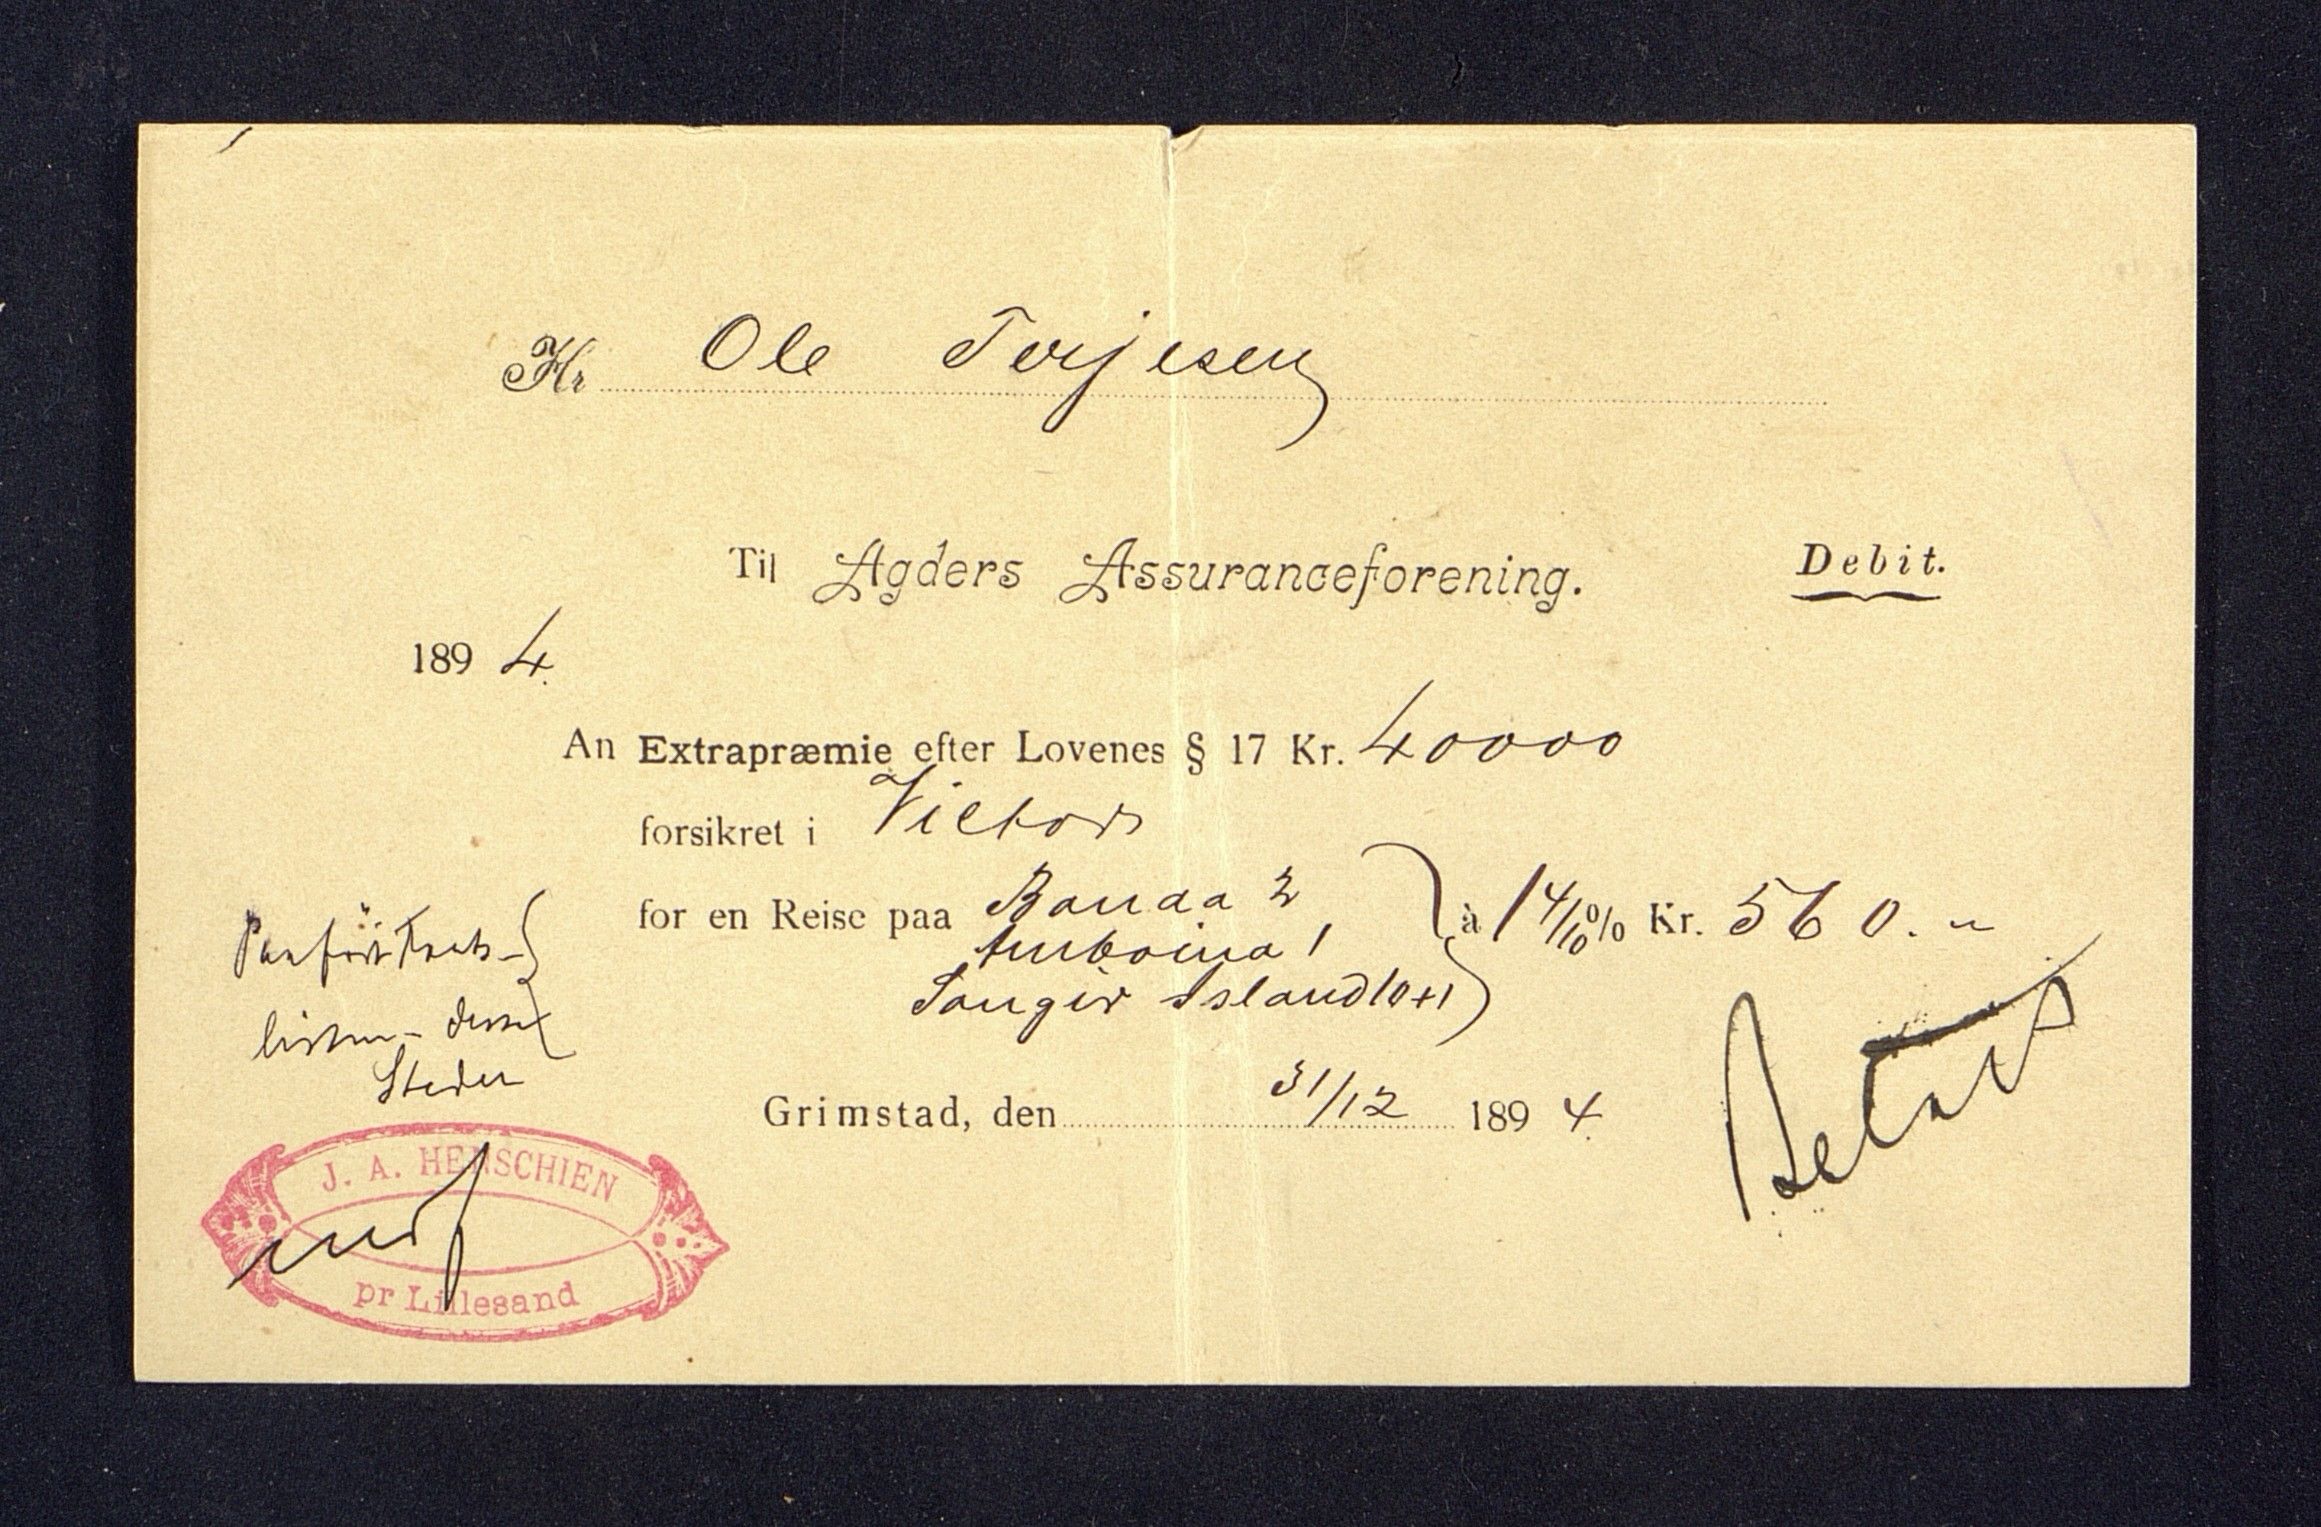 Hr Ole Terjesen
Til Agders Assuranceforening. Debit.
1894.
An Extrapræmie efter Lovenes § 17 Kr. 40000
forsikret i Victor
for en Reise paa Banda 2 à 1 4/10 % Kr. 560. "
Amboina 1
Sangir Island 10+1
Steder
Grimstad, den 31/12 1894.
Betalt
J. A. HENSCHIEN
pr Lillesand